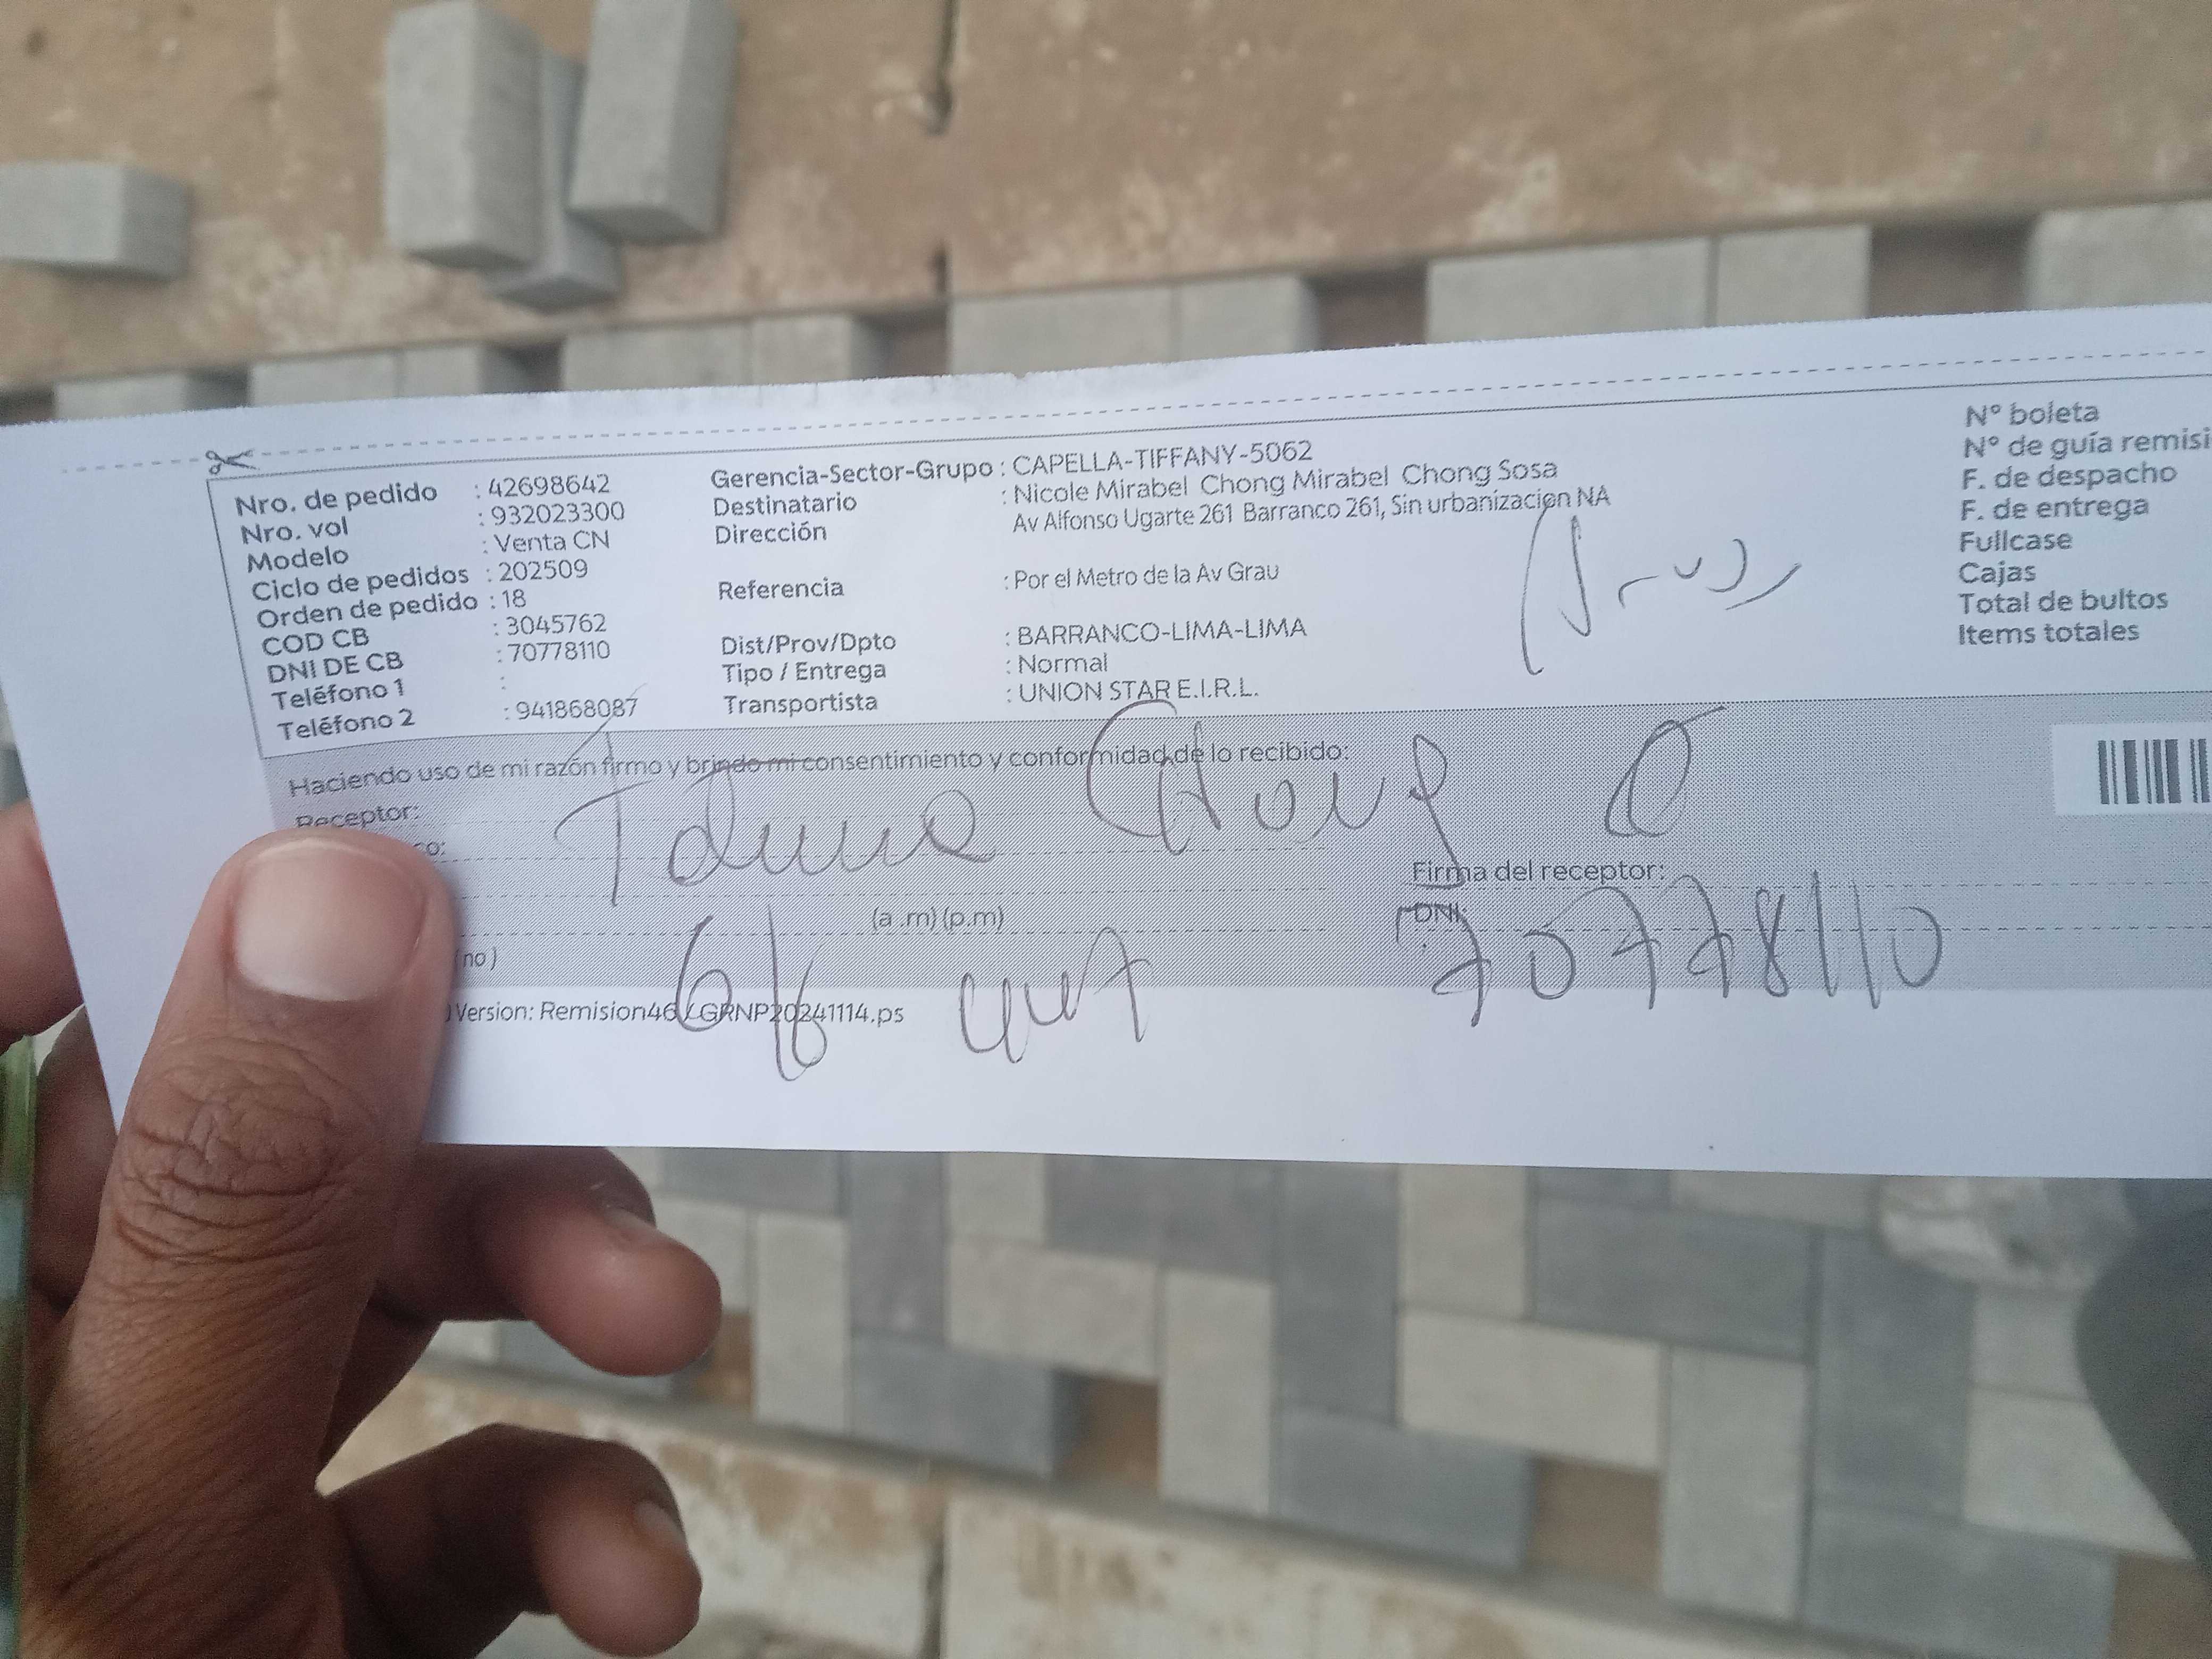 Nro. de pedido : 42698642
Nro. vol : 932023300
Modelo : Venta CN
Ciclo de pedidos : 202509
Orden de pedido : 18
COD CB : 3045762
DNI DE CB : 70778110
Teléfono 1 :
Teléfono 2 : 941868087
Gerencia-Sector-Grupo : CAPELLA-TIFFANY-5062
Destinatario : Nicole Mirabel Chong Mirabel Chong Sosa
Dirección Av Alfonso Ugarte 261 Barranco 261, Sin urbanizacion NA
Referencia : Por el Metro de la Av Grau
Dist/Prov/Dpto : BARRANCO-LIMA-LIMA
Tipo / Entrega : Normal
Transportista : UNION STAR E.I.R.L.
N° boleta
N° de guía remisi
F. de despacho
F. de entrega
Fullcase
Cajas
Total de bultos
Items totales
Haciendo uso de mi razón firmo y brindo mi consentimiento y conformidad de lo recibido:
Receptor:
co:
Chong
Firma del receptor:
(a.m) (p.m)
DNI: 70778110
(no)
6/6
) Version: Remision46 / GRNP20241114.ps